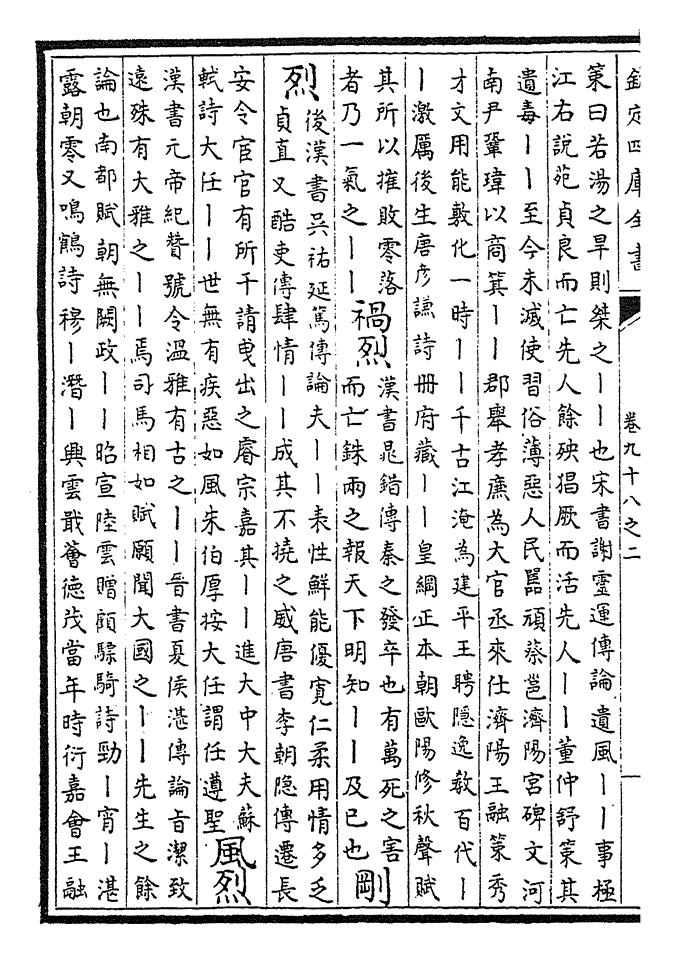 欽定四庫全書
卷九十八之二
一
策曰若湯之旱則桀之丨丨也宋書謝靈運傳論遺風丨丨事極
江右說苑貞良而亡先人餘殃猖厥而活先人丨丨董仲舒策其
遺毒丨丨至今未滅使習俗薄惡人民嚚頑蔡邕濟陽宮碑文河
南尹鞏瑋以商箕丨丨郡舉孝廉為大官丞來仕濟陽王融策秀
才文用能敷化一時丨丨千古江淹為建平王聘隱逸教百代丨
丨激厲後生唐彦謙詩册府藏丨丨皇綱正本朝歐陽修秋聲賦
其所以摧敗零落
者乃一氣之丨丨
禍烈
漢書鼂錯傳秦之發卒也有萬死之害
而亡銖兩之報天下明知丨丨及已也
剛
烈
後漢書吳祐延篤傳論夫丨丨表性鮮能優寬仁柔用情多乏
貞直又酷吏傳肆情丨丨成其不撓之威唐書李朝隐傳遷長
安令宦官有所干請曳出之睿宗嘉其丨丨進大中大夫蘇
軾詩大任丨丨世無有疾惡如風朱伯厚按大任謂任遵聖
風烈
漢書元帝紀贊號令温雅有古之丨丨晉書夏侯湛傳論旨潔致
遠殊有大雅之丨丨焉司馬相如賦願聞大國之丨丨先生之餘
論也南都賦朝無闕政丨丨昭宣陸雲贈顧驃騎詩勁丨宵丨湛
露朝零又鳴鶴詩穆丨潛丨興雲戢薈德茂當年時衍嘉會王融